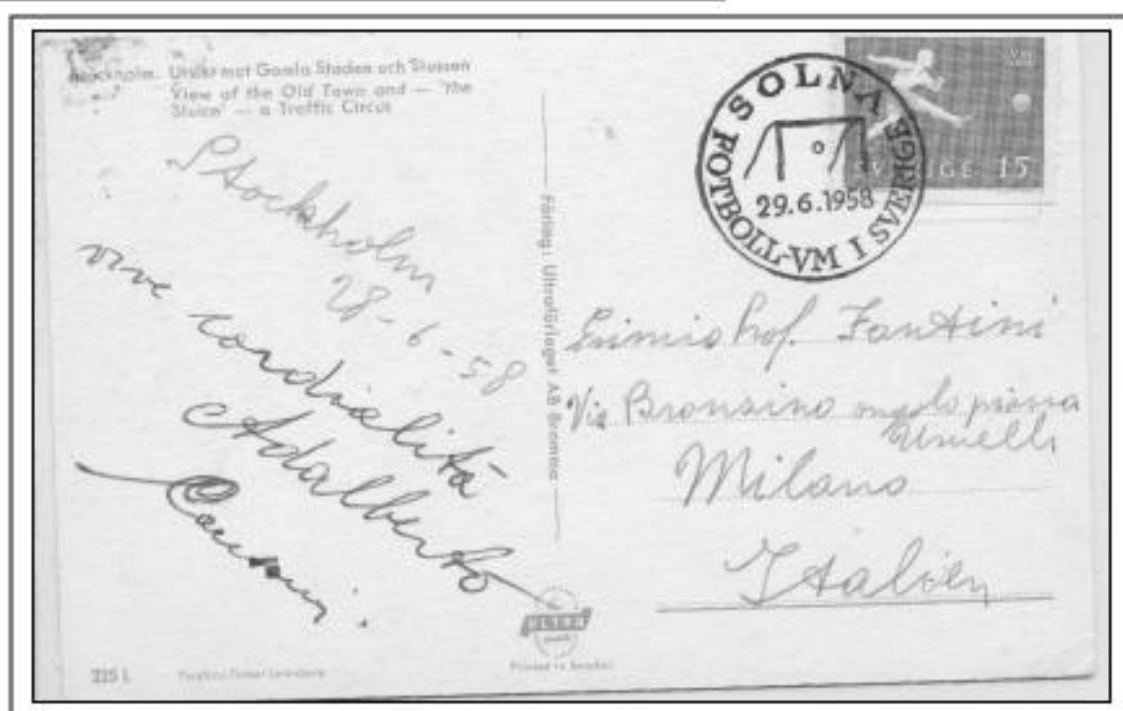 Stockholm. Utsikt mot Gamla Staden och Slussen
View of the Old Town and — 'The
Sluice' — a Traffic Circus
Stockholm
28-6-58
vive cordialità
Adalberto
Förlag: Ultraförlaget AB Bromma
SOLNA
29.6.1958
FOTBOLL-VM I SVERIGE
VM
SVERIGE 15
Prof. Fantini
Via Bronzino angolo piazza
Milano
Italien
225 L
ULTRA
Printed in Sweden